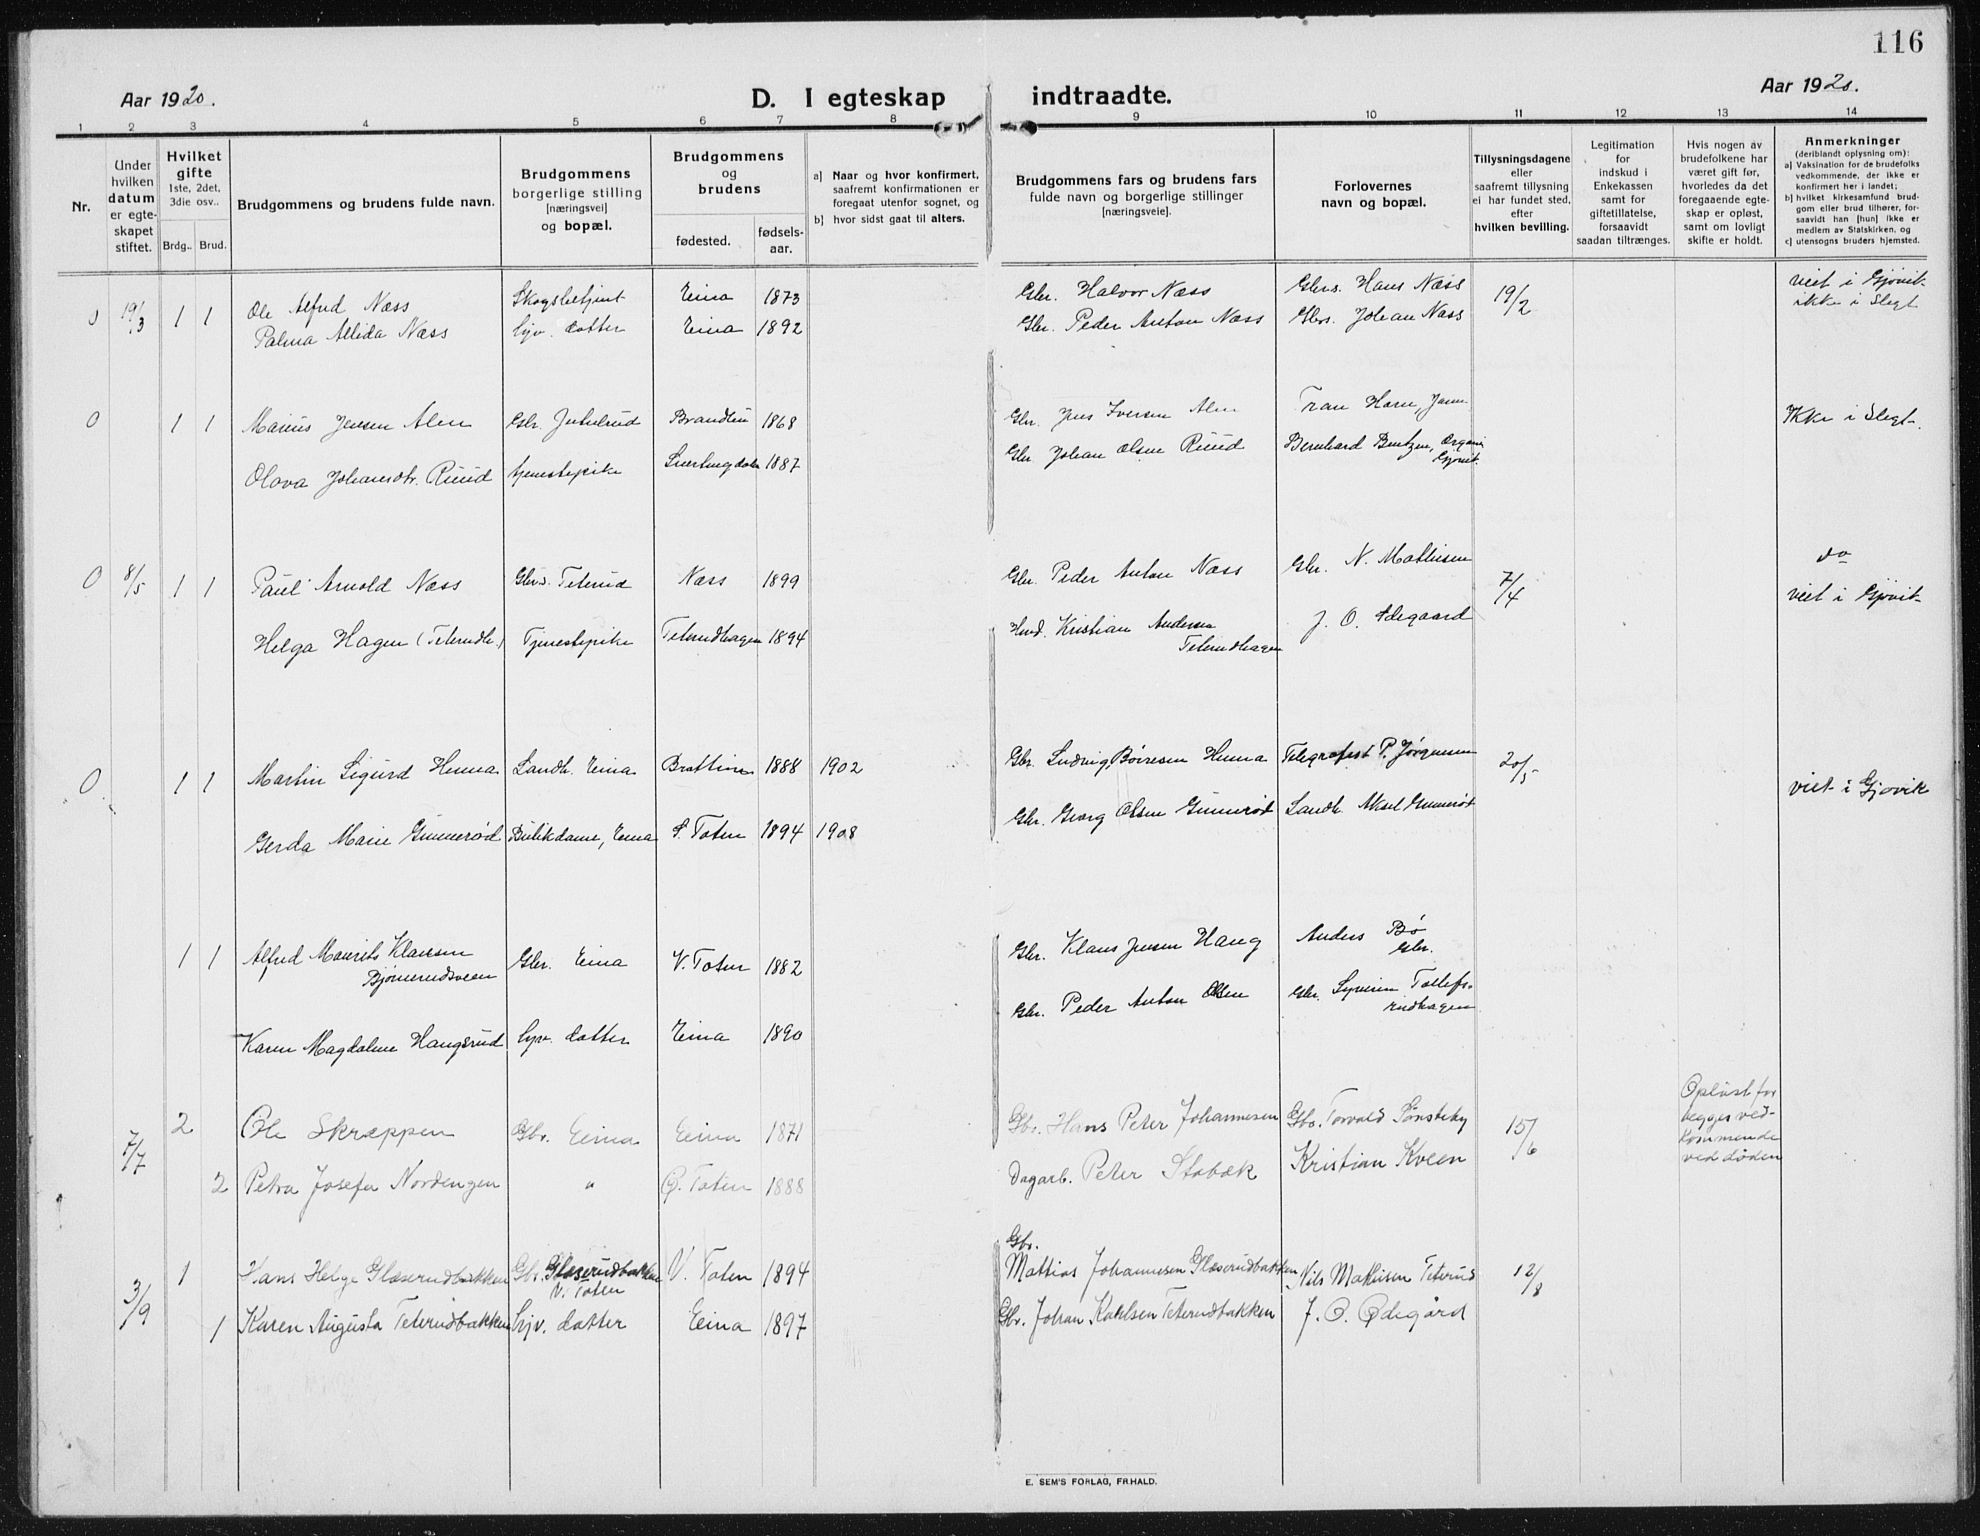 116
Aar 1920.
D. I egteskap indtraadte.
Aar 1920.
1 2 3 4 5 6 7 8 9 10 11 12 13 14
Nr.
Under
hvilken
datum
er egte-
skapet
stiftet.
Hvilket
gifte
1ste, 2det,
3die osv..
Brdg.. Brud.
Brudgommens og brudens fulde navn.
Brudgommens
borgerlige stilling
[næringsvei]
og bopæl.
Brudgommens
og
brudens
fødested.
fødsels-
aar.
a] Naar og hvor konfirmert,
saafremt konfirmationen er
foregaat utenfor sognet, og
b] hvor sidst gaat til alters.
Brudgommens fars og brudens fars
fulde navn og borgerlige stillinger
[næringsveie].
Forlovernes
navn og bopæl.
Tillysningsdagene
eller
saafremt tillysning
ei har fundet sted,
efter
hvilken bevilling.
Legitimation
for
indskud i
Enkekassen
samt for
giftetillatelse,
forsaavidt
saadan tiltrænges.
Hvis nogen av
brudefolkene har
været gift før,
hvorledes da det
foregaaende egte-
skap er opløst,
samt om lovligt
skifte er holdt.
Anmerkninger
(deriblandt oplysning om):
a] Vaksination for de brudefolks
vedkommende, der ikke er
konfirmert her i landet;
b] hvilket kirkesamfund brud-
gom eller brud tilhører, for-
saavidt han [hun] ikke er
medlem av Statskirken, og
c] utensogns bruders hjemsted.
19/3 1 1 Ole Alfred Næss Skogsbetjent Eina 1873 Gbr. Halvor Næss Gbrs. Hans Næss 19/2 viet i Gjøvik
ikke i Slegt
Palma Allida Næss hjv. datter Eina 1892 Gbr. Peder Anton Næss Gbrs. Johan Næss
0 1 1 Marius Jensen Alen Gbr. Jutulrud Brandbu 1868 Gbr. Jens Iversen Alen Ikke i Slegt.
Olava Johansdtr. Ruud tjenestepike 1887 Gbr Johan Olsen Ruud Bernhard Bentzen,
Gjøvik.
0 8/5 1 1 Paul Arnold Næss Gbrs. Teterud Næss 1899 Gbr. Peder Anton Næss Gbr. N. Mathisen 7/4 do
viet i Gjøvik
Helga Hagen (Teterudh.) Tjenestepike Teterudhagen 1894 Husd. Kristian Andersen
Teterudhagen J. O. Ødegaard
0 1 1 Martin Sigurd Hunna Landh. Eina 1888 1902 Gbr. Ludvig Børresen Hunna Telegrafist P. Jørgensen 20/5 viet i Gjøvik
Gerda Marie Gunnerød Butikdame, Eina Ø. Toten 1894 1908 Gbr. Georg Olsen Gunnerød Landh. Aksel Gunnerød
1 1 Alfred Maurits Klausen
Bjørnerudsveen Gbr. Eina V. Toten 1882 Gbr. Klaus Jensen Haug Anders Bø
Gbr.
Gbr. Peder Anton Olsen Gbr. Syverin Tollefs-
rudhagen
Karen Magdalene Haugsrud hjv. datter Eina 1890
7/7 2 Ole Skræppen Gbr. Eina Eina 1871 Gbr. Hans Peter Johannesen Gbr. Torvald Sønsteby 15/6 Opløst for
begges ved-
kommende
ved døden
2 Petra Josefa Nordengen " Ø. Toten 1888 Dagarb. Peter Stabæk Kristian Kveen
3/9 1 Hans Helge Glæserudbakken Gbr. Glæserudbakken
V. Toten V. Toten 1894 Gbr.
Mattias Johannesen Glæserudbakken Nils Mathisen Teterud 12/8
1 Karen Augusta Teterudbakken hjv. datter Eina 1897 Gbr. Johan Karlsen Teterudbakken J. O. Ødegård
E. SEM'S FORLAG, FR.HALD.